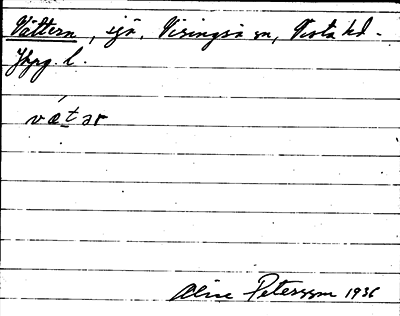 Vättern, sjö, Visingsö sn, Vista hd.
Jkpg. l.
vǽtər
Aline Petersson 1936